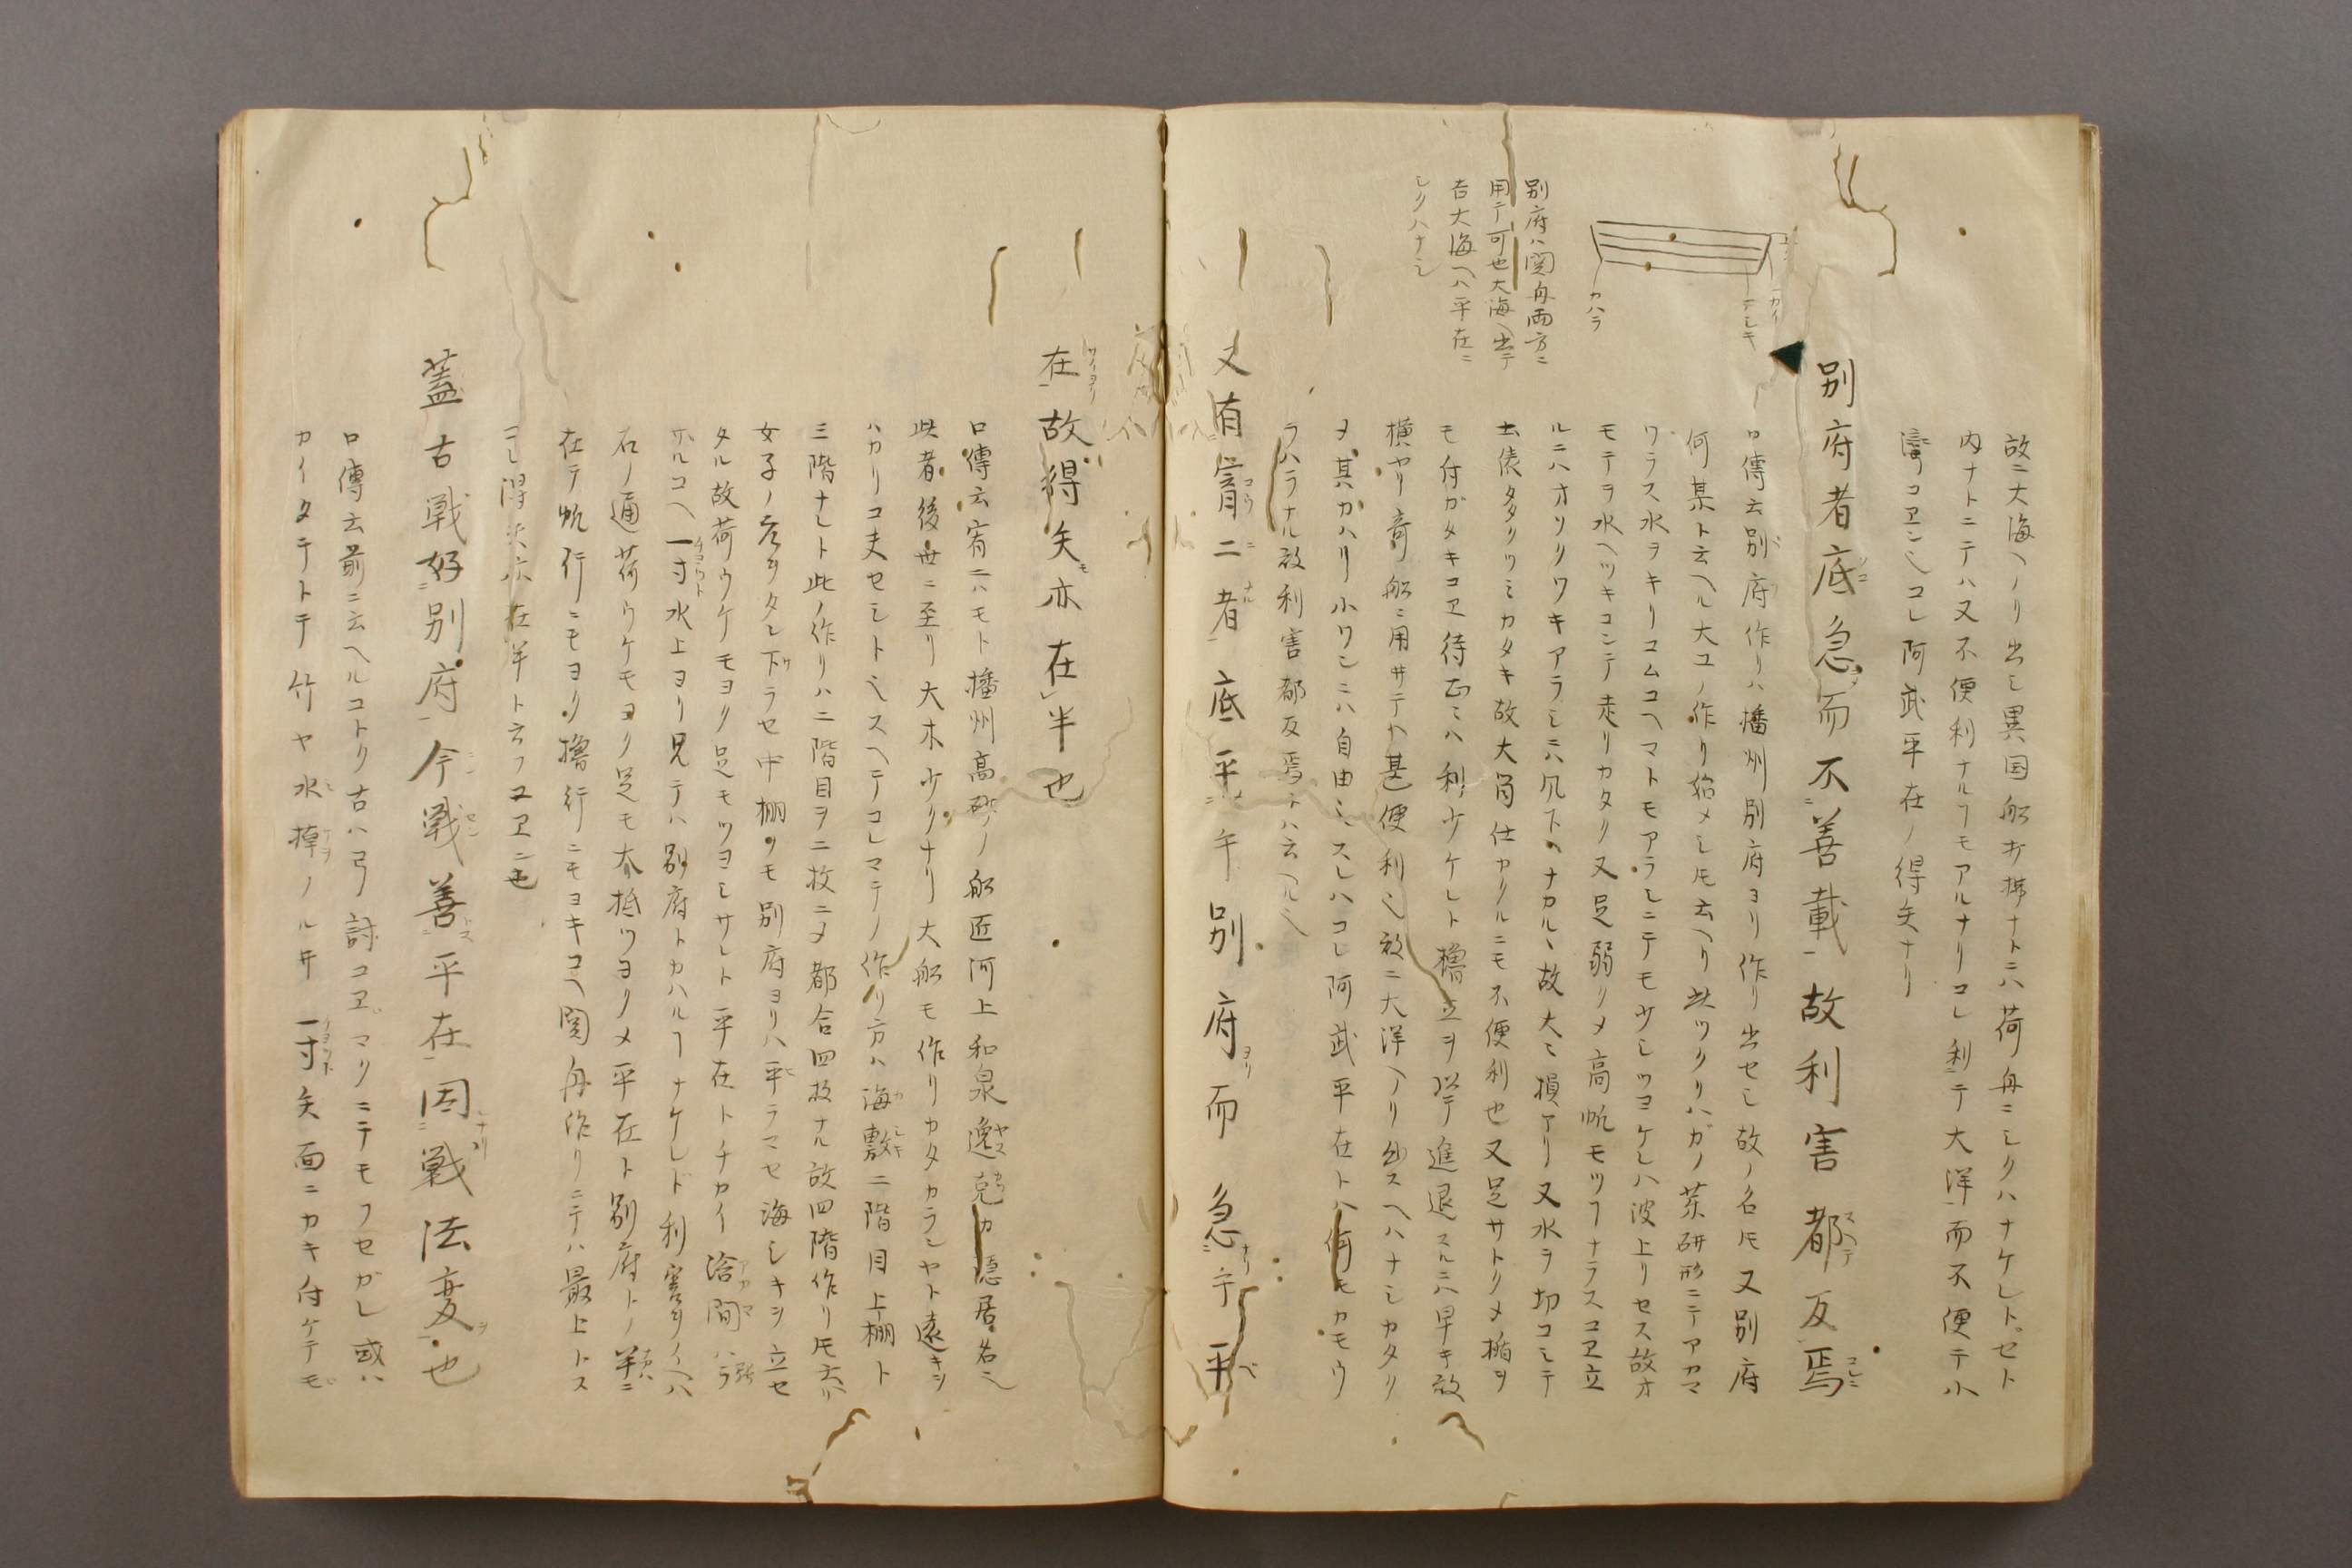 故ニ大海ヘノリ出シ異国船打拂ナトニハ荷舟ニシクハナケレトセト
内ナトニテハ又不便利ナルヿモアルナリコレ利テ大洋而不便テ小
濤ノユヱンヘコレ阿武平在ノ得矢ナリ
別府者底急而不善載故利害都反焉
口傳云別府作リハ播州別府ヨリ作リ出セシ故ノ名ヘ又別府
何某ト云ヘル大工ノ作リ始メシ𪜈云ヘリ此ツクリハガノ茶研形ニテアカマ
ワラス水ヲキリコムユヘマトモアラシニテモ少シツヨケレハ波上リセス故オ
モテラ水ヘツキコンテ走リカタク又足弱クメ高帆モツヿナラスユヱ立
ルニハオソクワキアラシニハ風下ヘナカルヽ故大ニ損アリ又水ヲ切コミテ
土俵タクツミカタキ故大筒仕カクルニモ不便利也又足サトクメ楯ヲ
モ付ガタキユヱ待ニハ利少ケレト櫓立ヲ以テ進退スルニハ早キ故
横ヤリ奇船ニ用サテハ甚便利ヘ故ニ大洋ヘノリ出スヘハナシカタク
ヲ其カハリ小ワシニハ自由ニスレハコレ阿武平在トハ何モカモウ
ラハラナル故利害都反焉トハ云ヘルヘ
別府ハ関舟両方ニ
用テ可也大海ヘ出テ
吉大海ヘハ平在ニ
シクハナシ
カハラ
カイ
テシキ
又有宵二者底平乎別府而急乎平
在故得矢亦在半也
口傳云宵ニハモト播州高砂ノ船匠河上和泉逸克カ隠居名ヘ
此者後世ニ至リ大木少クナリ大船モ作リカタカランヤト遠キヲ
ハカリユ夫セシトヘスヘテコレマテノ作リ方ハ海敷二階目上棚ト
三階ナレト此ノ作リハ二階目ヲ二枚ニメ都合四枚ナル故四階作リ𪜈云
女子ノ左タシ下ラセ中棚ノモ別府ヨリハ平ラマセ海シキヲ立セ
タル故荷ウケモヨク足モツヨシサレト平在トチカイ淦間ハラ
ホルユヘ一寸水上ヨリ見テハ別府トカハルヿナケレド利害ノハ
石ノ通荷ウケモヨク足モ大抵ツヨクメ平在ト別府トノ半ニ
在テ帆行ニモヨク櫓行ニモヨキユヘ関舟作リニテハ最上トス
コレ得矢亦在半ト云フユヱニ也
蓋古戦好別府今戦善平在因戦法変也
口傳云前ニ云ヘルコトク古ハ弓討ユヱマクニテモフセガレ或ハ
カイタテトテ竹ヤ水棹ノルヰ一寸矢面ニカキ付ケテモ